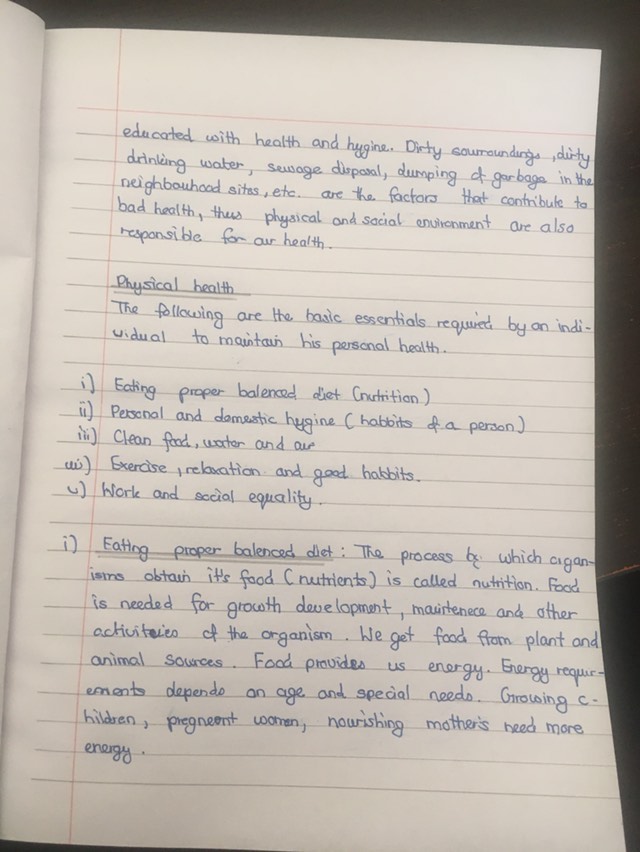 educated with health and hygine. Dirty sourroundings, dirty
drinking water, sewage disposal, dumping of garbage in the
neighbouhood sites, etc. are the factors that contribute to
bad health, thus physical and social environment are also
responsible for our health.
Physical health
The following are the basic essentials required by an indi-
vidual to maintain his personal health.
i) Eating proper balenced diet (nutrition)
ii) Personal and domestic hygine (habbits of a person)
iii) Clean food, water and air
iv) Exercise, relaxation and good habbits.
v) Work and social equality.
i) Eating proper balenced diet : The process by which organ-
isms obtain it's food (nutrients) is called nutrition. Food
is needed for growth development, maintenece and other
activities of the organism. We get food from plant and
animal sources. Food provides us energy. Energy requir-
ements depends on age and special needs. Growing c-
hildren, pregneent women, nourishing mother's need more
energy.